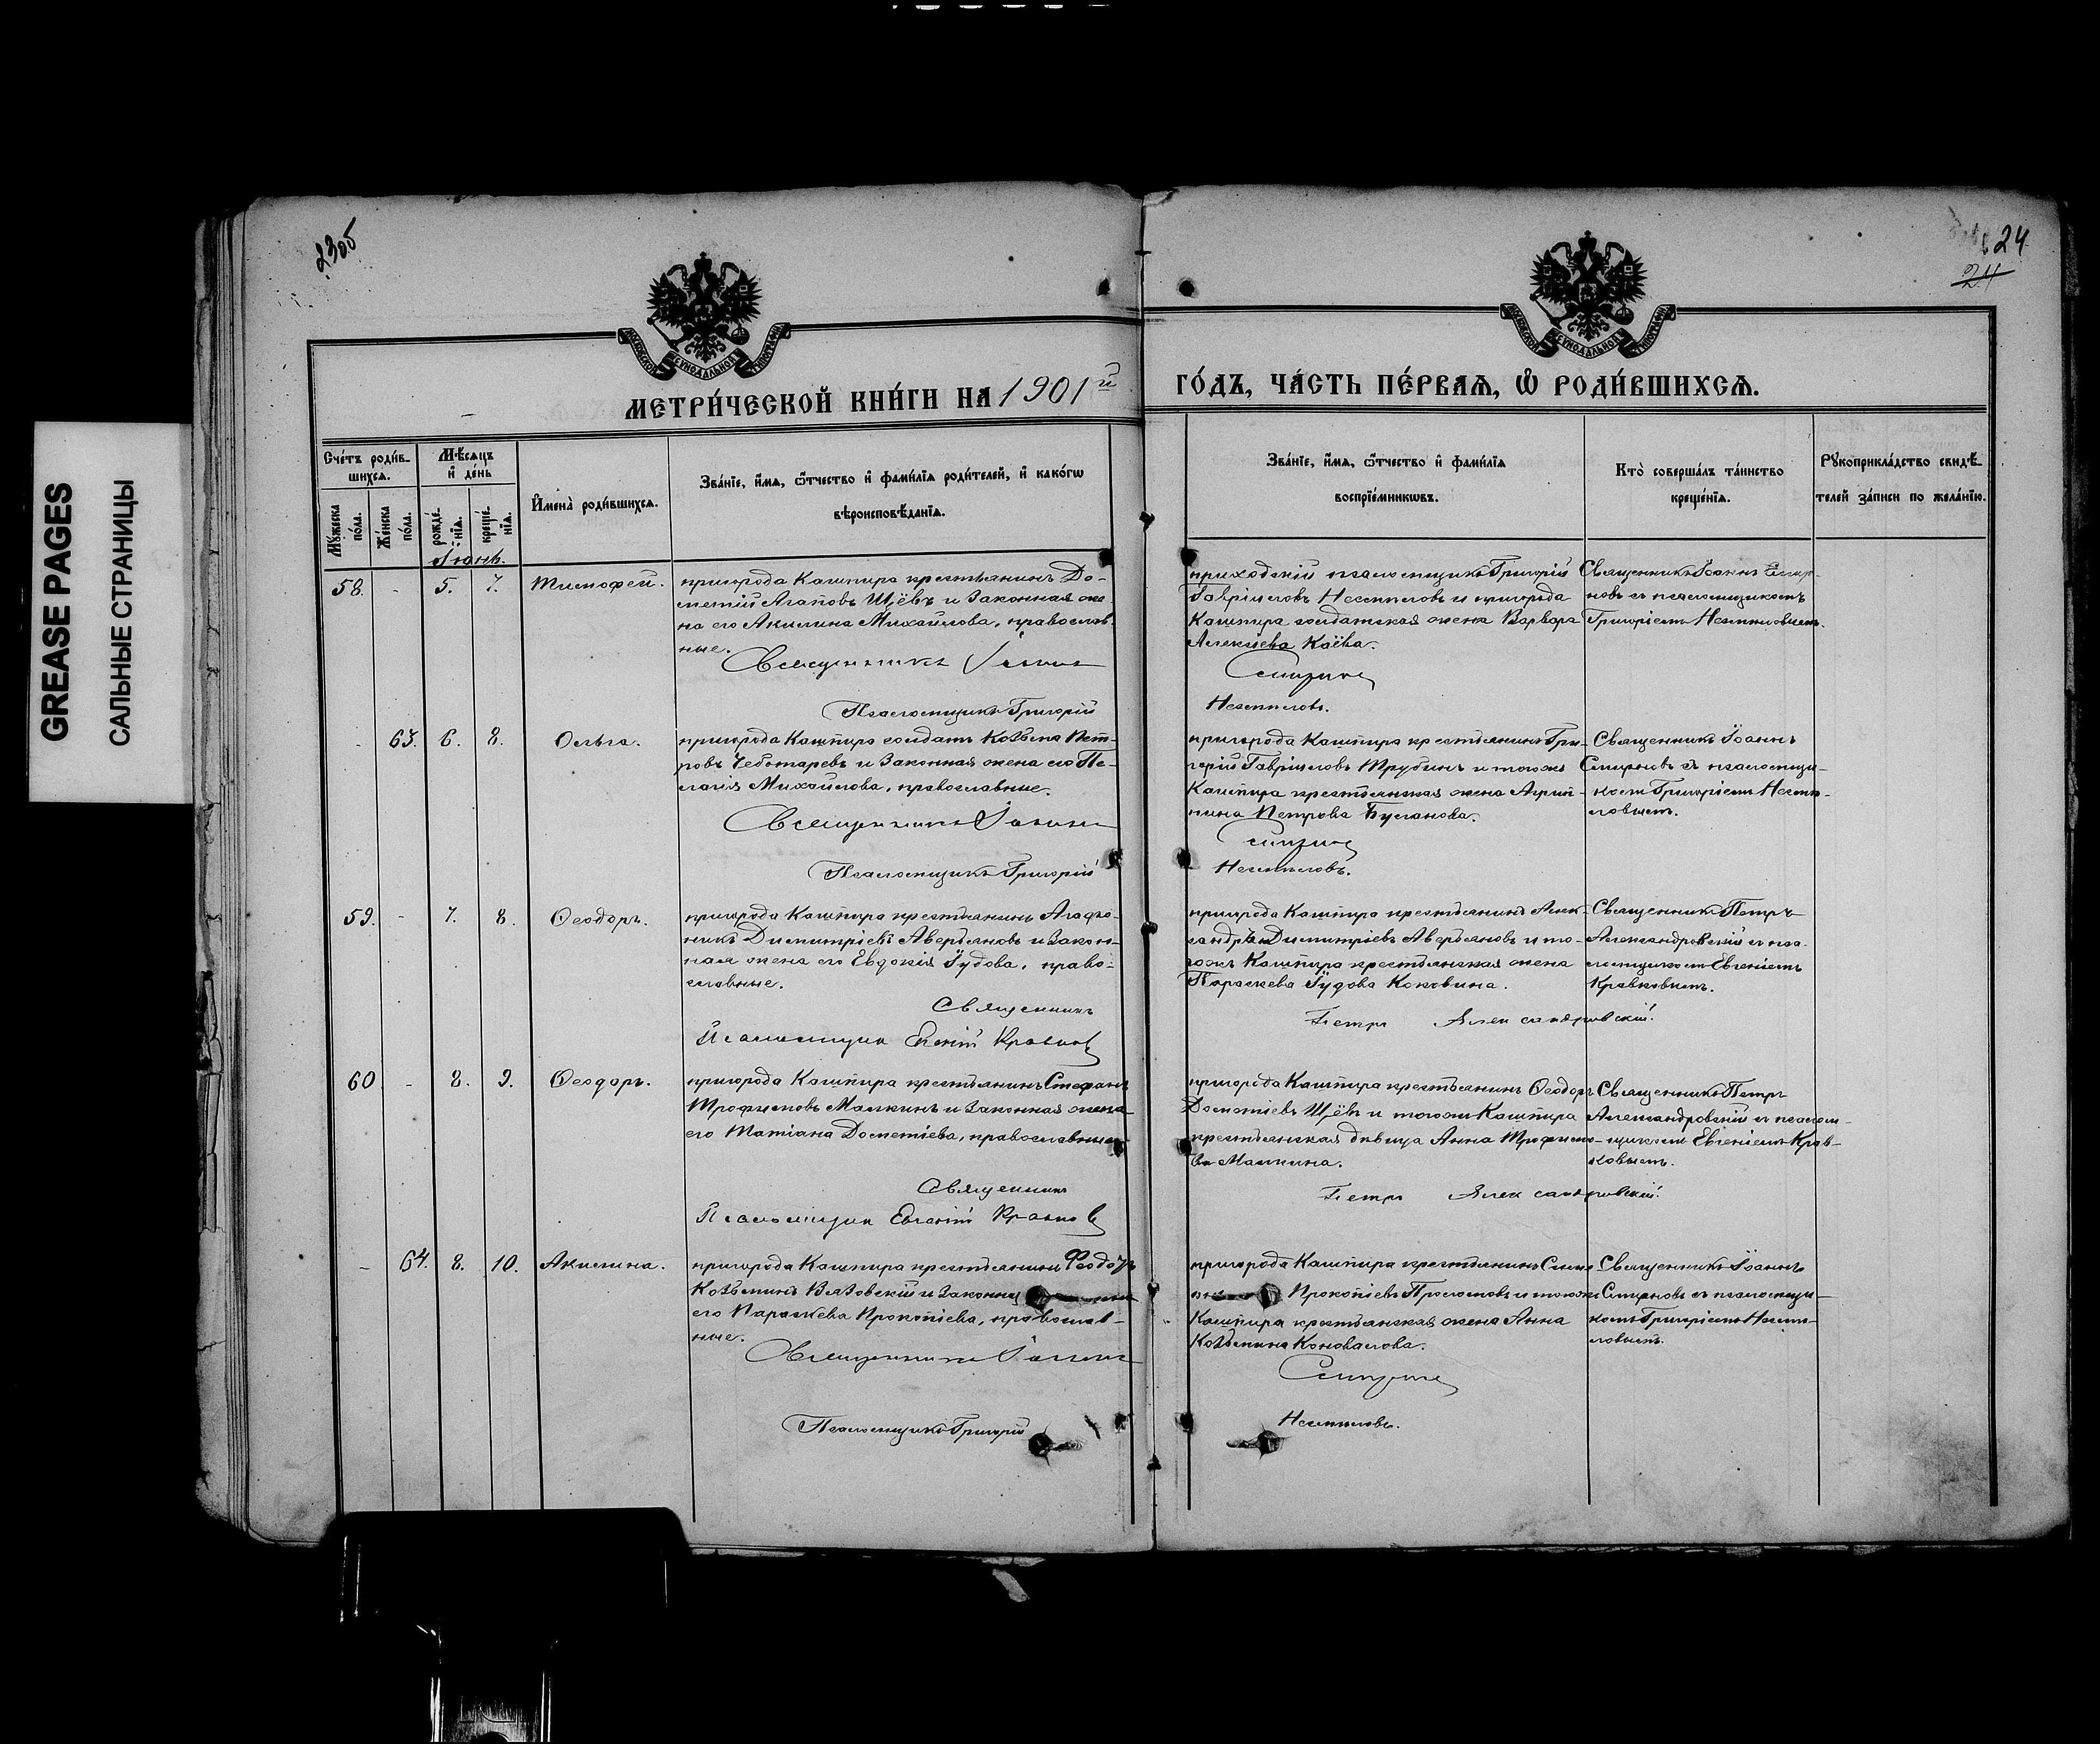 GREASE PAGES
САЛЬНЫЕ СТРАНИЦЫ
23об
24
24
МОСКОВСКОЙ СѴНОДАЛЬНОЙ ТИПОГРАФІИ
МОСКОВСКОЙ СѴНОДАЛЬНОЙ ТИПОГРАФІИ
МЕТРИ́ЧЕСКОЙ КНИ́ГИ НА 1901й
ГО́ДЪ, ЧА́СТЬ ПЕ́РВАѦ, Ѡ РОДИ́ВШИХСѦ.
Сче́тъ роди́в-
шихсѧ.
Мꙋ́жеска
по́ла.
Же́нска
по́ла.
Мѣ́сѧцъ
и҆ де́нь
рожде́-
нїѧ.
креще́-
нїѧ.
И҆мена̀ роди́вшихсѧ.
Зва́нїе, и҆́мѧ, ѻ҆́тчество и҆ фами́лїѧ роди́телей, и҆ како́гѡ
вѣроисповѣ́данїѧ.
Зва́нїе, и҆́мѧ, ѻ҆́тчество и҆ фами́лїѧ
воспрїе́мникѡвъ.
Кто̀ соверша́лъ та́инство
креще́нїѧ.
Рꙋкоприкла́дство свидѣ́-
телей за́писи по жела́нїю.
Іюнь.
58.
-
5.
7.
Тимофей.
пригорода Кашпира крестьянинъ До-
метій Агаповъ Щёвъ и законная же-
на его Акилина Михайлова, православ-
ные.
Священникъ Іоаннъ
Псаломщикъ Григорій
приходскій псаломщикъ Григорій
Гавріиловъ Несмѣловъ и пригорода
Кашпира солдатская жена Варвара
Алексіева Каёва.
Смирновъ
Несмѣловъ.
Священникъ Іоаннъ Смир-
новъ съ псаломщикомъ
Григоріемъ Несмѣловымъ.
-
63.
6.
8.
Ольга.
пригорода Кашпира солдатъ Козьма Пет-
ровъ Чеботаревъ и законная жена его Пе-
лагія Михайлова, православные.
Священникъ Іоаннъ
Псаломщикъ Григорій
пригорода Кашпира крестьянинъ Гри-
горій Гавріиловъ Трубинъ и того-жъ
Кашпира крестьянская жена Агрип-
пина Петрова Буланова.
Смирновъ
Несмѣловъ.
Священникъ Іоаннъ
Смирновъ съ псаломщи-
комъ Григоріемъ Несмѣ-
ловымъ.
59.
-
7.
8.
Ѳеодоръ.
пригорода Кашпира крестьянинъ Агаѳо-
никъ Димитріевъ Аверьяновъ и закон-
ная жена его Евдокія Іудова, право-
славные.
Священникъ
Псаломщикъ Евгеній Кравковъ
пригорода Кашпира крестьянинъ Алек-
сандръ Димитріевъ Аверьяновъ и то-
гожъ Кашпира крестьянская жена
Параскева Іудова Коковина.
Петръ Александровскій.
Священникъ Петръ
Александровскій съ пса-
ломщикомъ Евгеніемъ
Кравковымъ.
60.
-
8.
9.
Ѳеодоръ.
пригорода Кашпира крестьянинъ Стефанъ
Трофимовъ Малкинъ и законная жена
его Татіана Дометіева, православные.
Священникъ
Псаломщикъ Евгеній Кравковъ
пригорода Кашпира крестьянинъ Ѳеодоръ
Дометіевъ Щёвъ и того-жъ Кашпира
крестьянская дѣвица Анна Трофимо-
ва Малкина.
Петръ Александровскій.
Священникъ Петръ
Александровскій съ псалом-
щикомъ Евгеніемъ Крав-
ковымъ.
-
64.
8.
10.
Акилина.
пригорода Кашпира крестьянинъ Ѳеодотъ
Козьминъ Вязовскій и законная жена
его Параскева Прокопіева, православ-
ные.
Священникъ Іоаннъ
Псаломщикъ Григорій
пригорода Кашпира крестьянинъ
Прокопіевъ и того-жъ
Кашпира крестьянская жена Анна
Козьмина Коновалова.
Смирновъ
Несмѣловъ.
Священникъ Іоаннъ
Смирновъ съ псаломщи-
комъ Григоріемъ Несмѣ-
ловымъ.